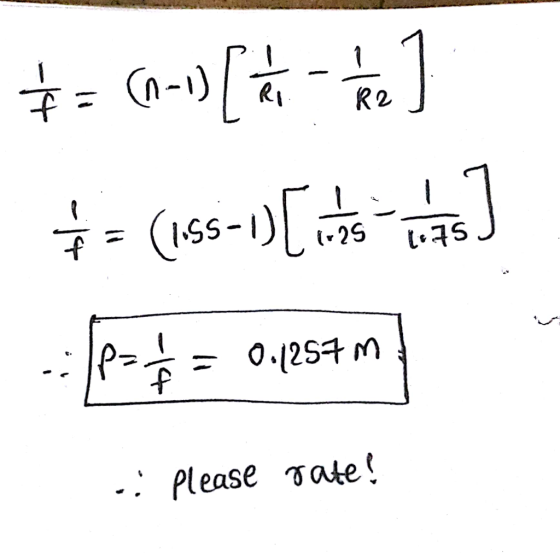 1/f = (n-1) [1/R1 - 1/R2]
1/f = (1.55-1) [1/1.25 - 1/1.75]
∴ P = 1/f = 0.1257 m
∴ please rate!